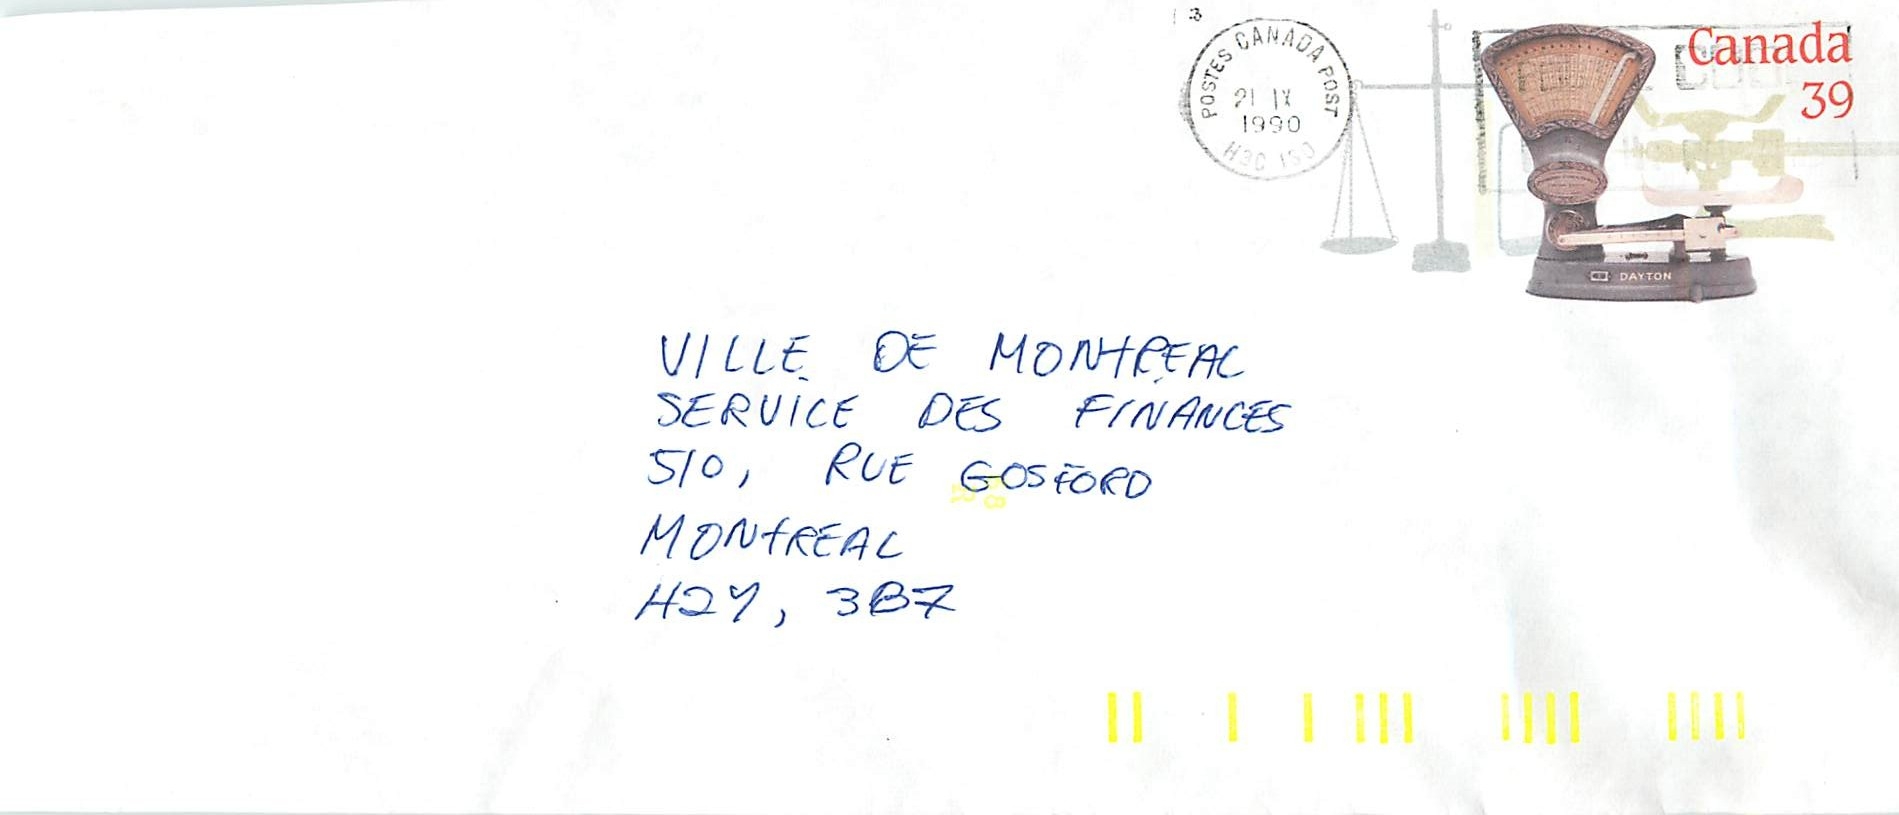 3
POSTES CANADA POST
21 IX
1990
H3C 1S0
Canada
39
DAYTON
VILLE DE MONTREAL
SERVICE DES FINANCES
510, RUE GOSFORD
MONTREAL
H2Y, 3B7